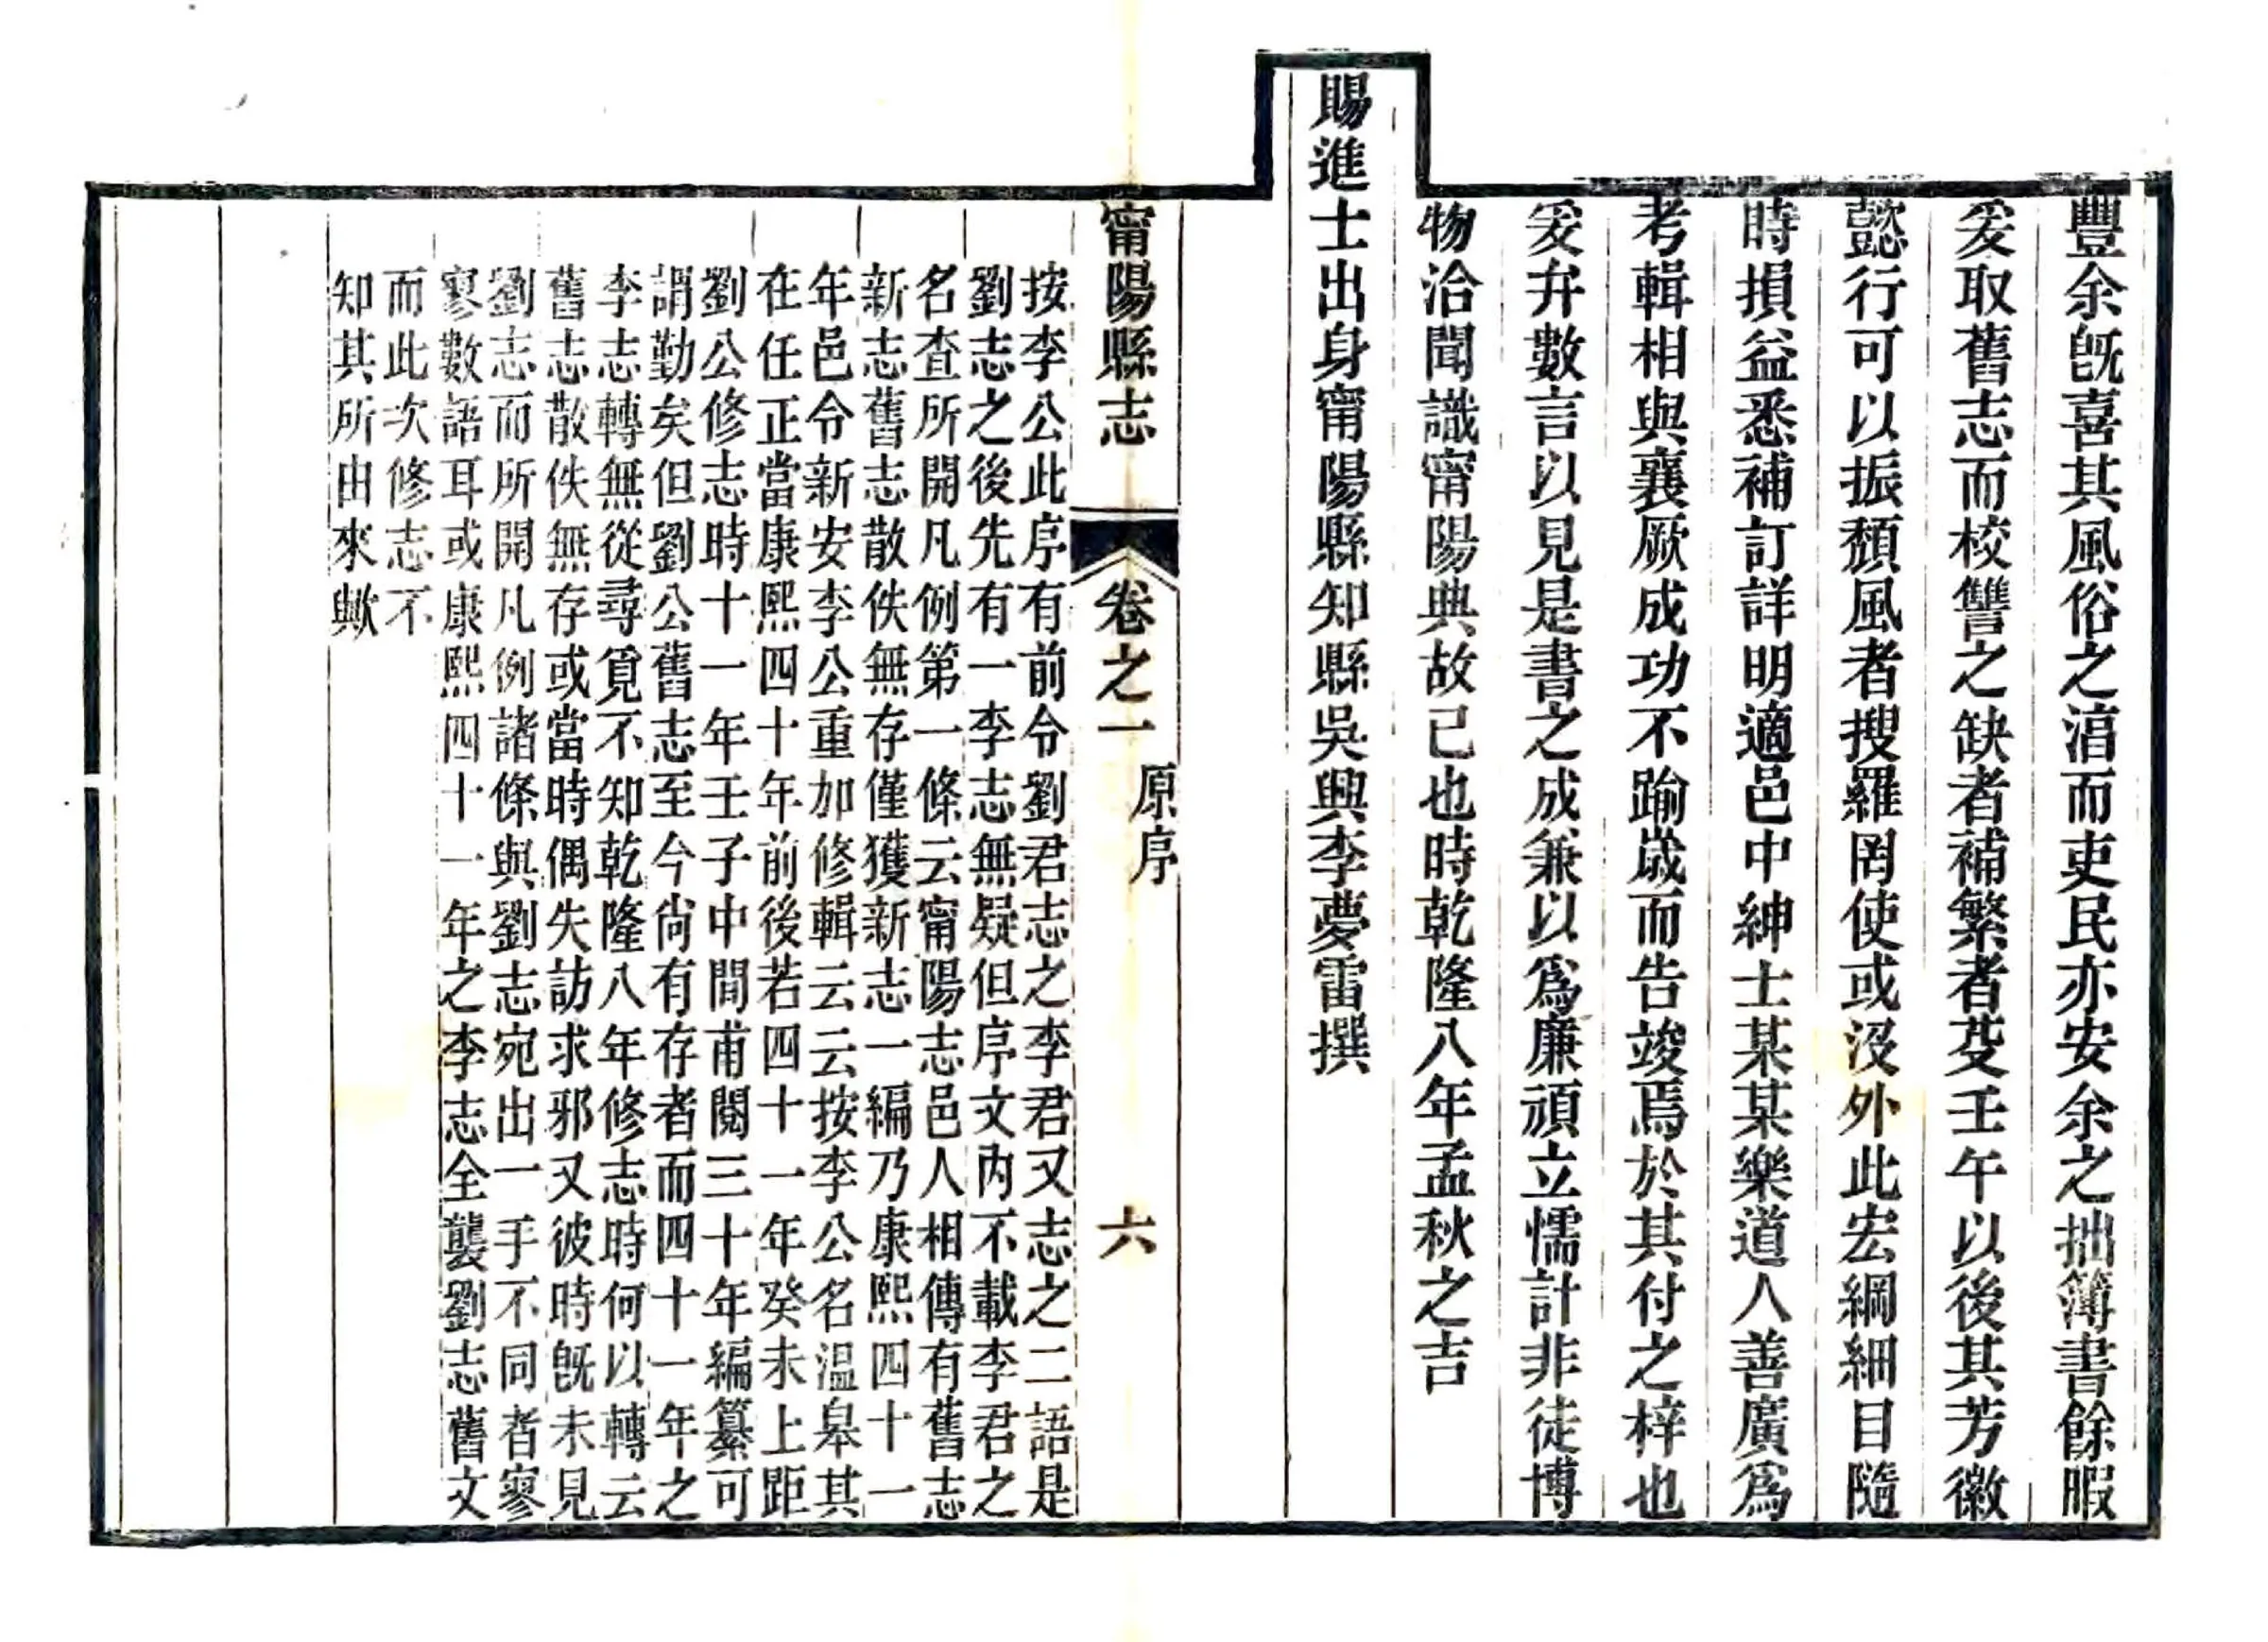 豐余旣喜其風俗之湻而吏民亦安余之拙簿書餘暇
爰取舊志而校讐之缺者補繁者芟壬午以後其芳徽
懿行可以振頹風者搜羅罔使或沒外此宏綱細目隨
時損益悉補訂詳明適邑中紳士某某樂道人善廣爲
考輯相與襄厥成功不踰歲而告竣焉於其付之梓也
爰弁數言以見是書之成兼以爲廉頑立懦計非徒博
物洽聞識甯陽典故已也時乾隆八年孟秋之吉
賜進士出身甯陽縣知縣吳興李夢雷撰
甯陽縣志 卷之一 原序 六
按李公此序有前令劉君志之李君又志之二語是
劉志之後先有一李志無疑但序文內不載李君之
名查所開凡例第一條云甯陽志邑人相傳有舊志
新志舊志散佚無存僅獲新志一編乃康熙四十一
年邑令新安李公重加修輯云云按李公名溫皐其
在任正當康熙四十年前後若四十一年癸未上距
劉公修志時十一年壬子中間甫閱三十年編纂可
謂勤矣但劉公舊志至今尙有存者而四十一年之
李志轉無從尋覓不知乾隆八年修志時何以轉云
舊志散佚無存或當時偶失訪求邪又彼時旣未見
劉志而所開凡例諸條與劉志宛出一手不同者寥
寥數語耳或康熙四十一年之李志全襲劉志舊文
而此次修志不
知其所由來歟